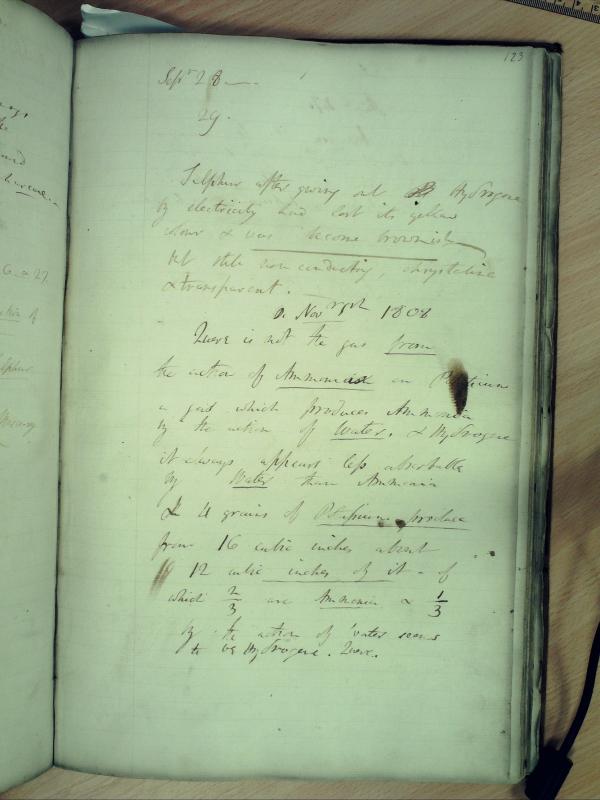 123
Sept 28 —
29.
Sulphur after giving out Hydrogene
by electricity had lost its yellow
colour & was become brownish
but still non conducting, chrystaline
& transparent.
Nov 1808
Quere is not the gas from
the action of Ammonia on Potasium
a gas which produces Ammonia
by the action of Water. & Hydrogene
it always appears less absorbable
by Water than Ammonia
4 grains of Potasium produce
from 16 cubic inches about
12 cubic inches of it - of
which 2/3 are Ammonia & 1/3
by the action of water seems
to be Hydrogene. Quere.
6 & 27.
of
Sulphur
Mercury